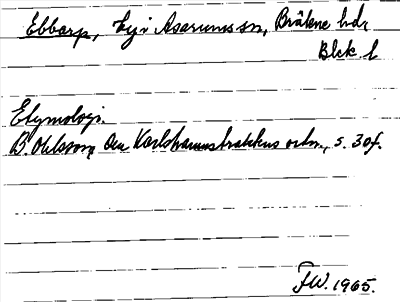 Ebbarp, by i Asarums sn, Bräkne hd,
Blek. l.
Etymologi.
B. Ohlsson, Om Karlshamnstraktens ortn., s. 30f.
F.W. 1965.